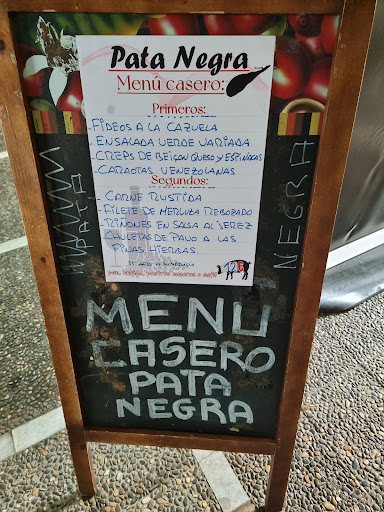 Pata Negra
Menú casero:
Primeros:
-FIDEOS A LA CAZUELA
-ENSALADA VERDE VARIADA
-CREPS DE BEISON QUESO Y ESPINACAS
-CARAOTAS VENEZOLANAS
Segundos:
-CARNE RUSTIDA
-FILETE DE MERLUZA REBOZADO
-RIÑONES EN SALSA AL JEREZ
-CHULETAS DE PAVO A LAS
FINAS HIERBAS
pan, bebida, postres caseros o café
PATA
NEGRA
MENU
CASERO
PATA
NEGRA